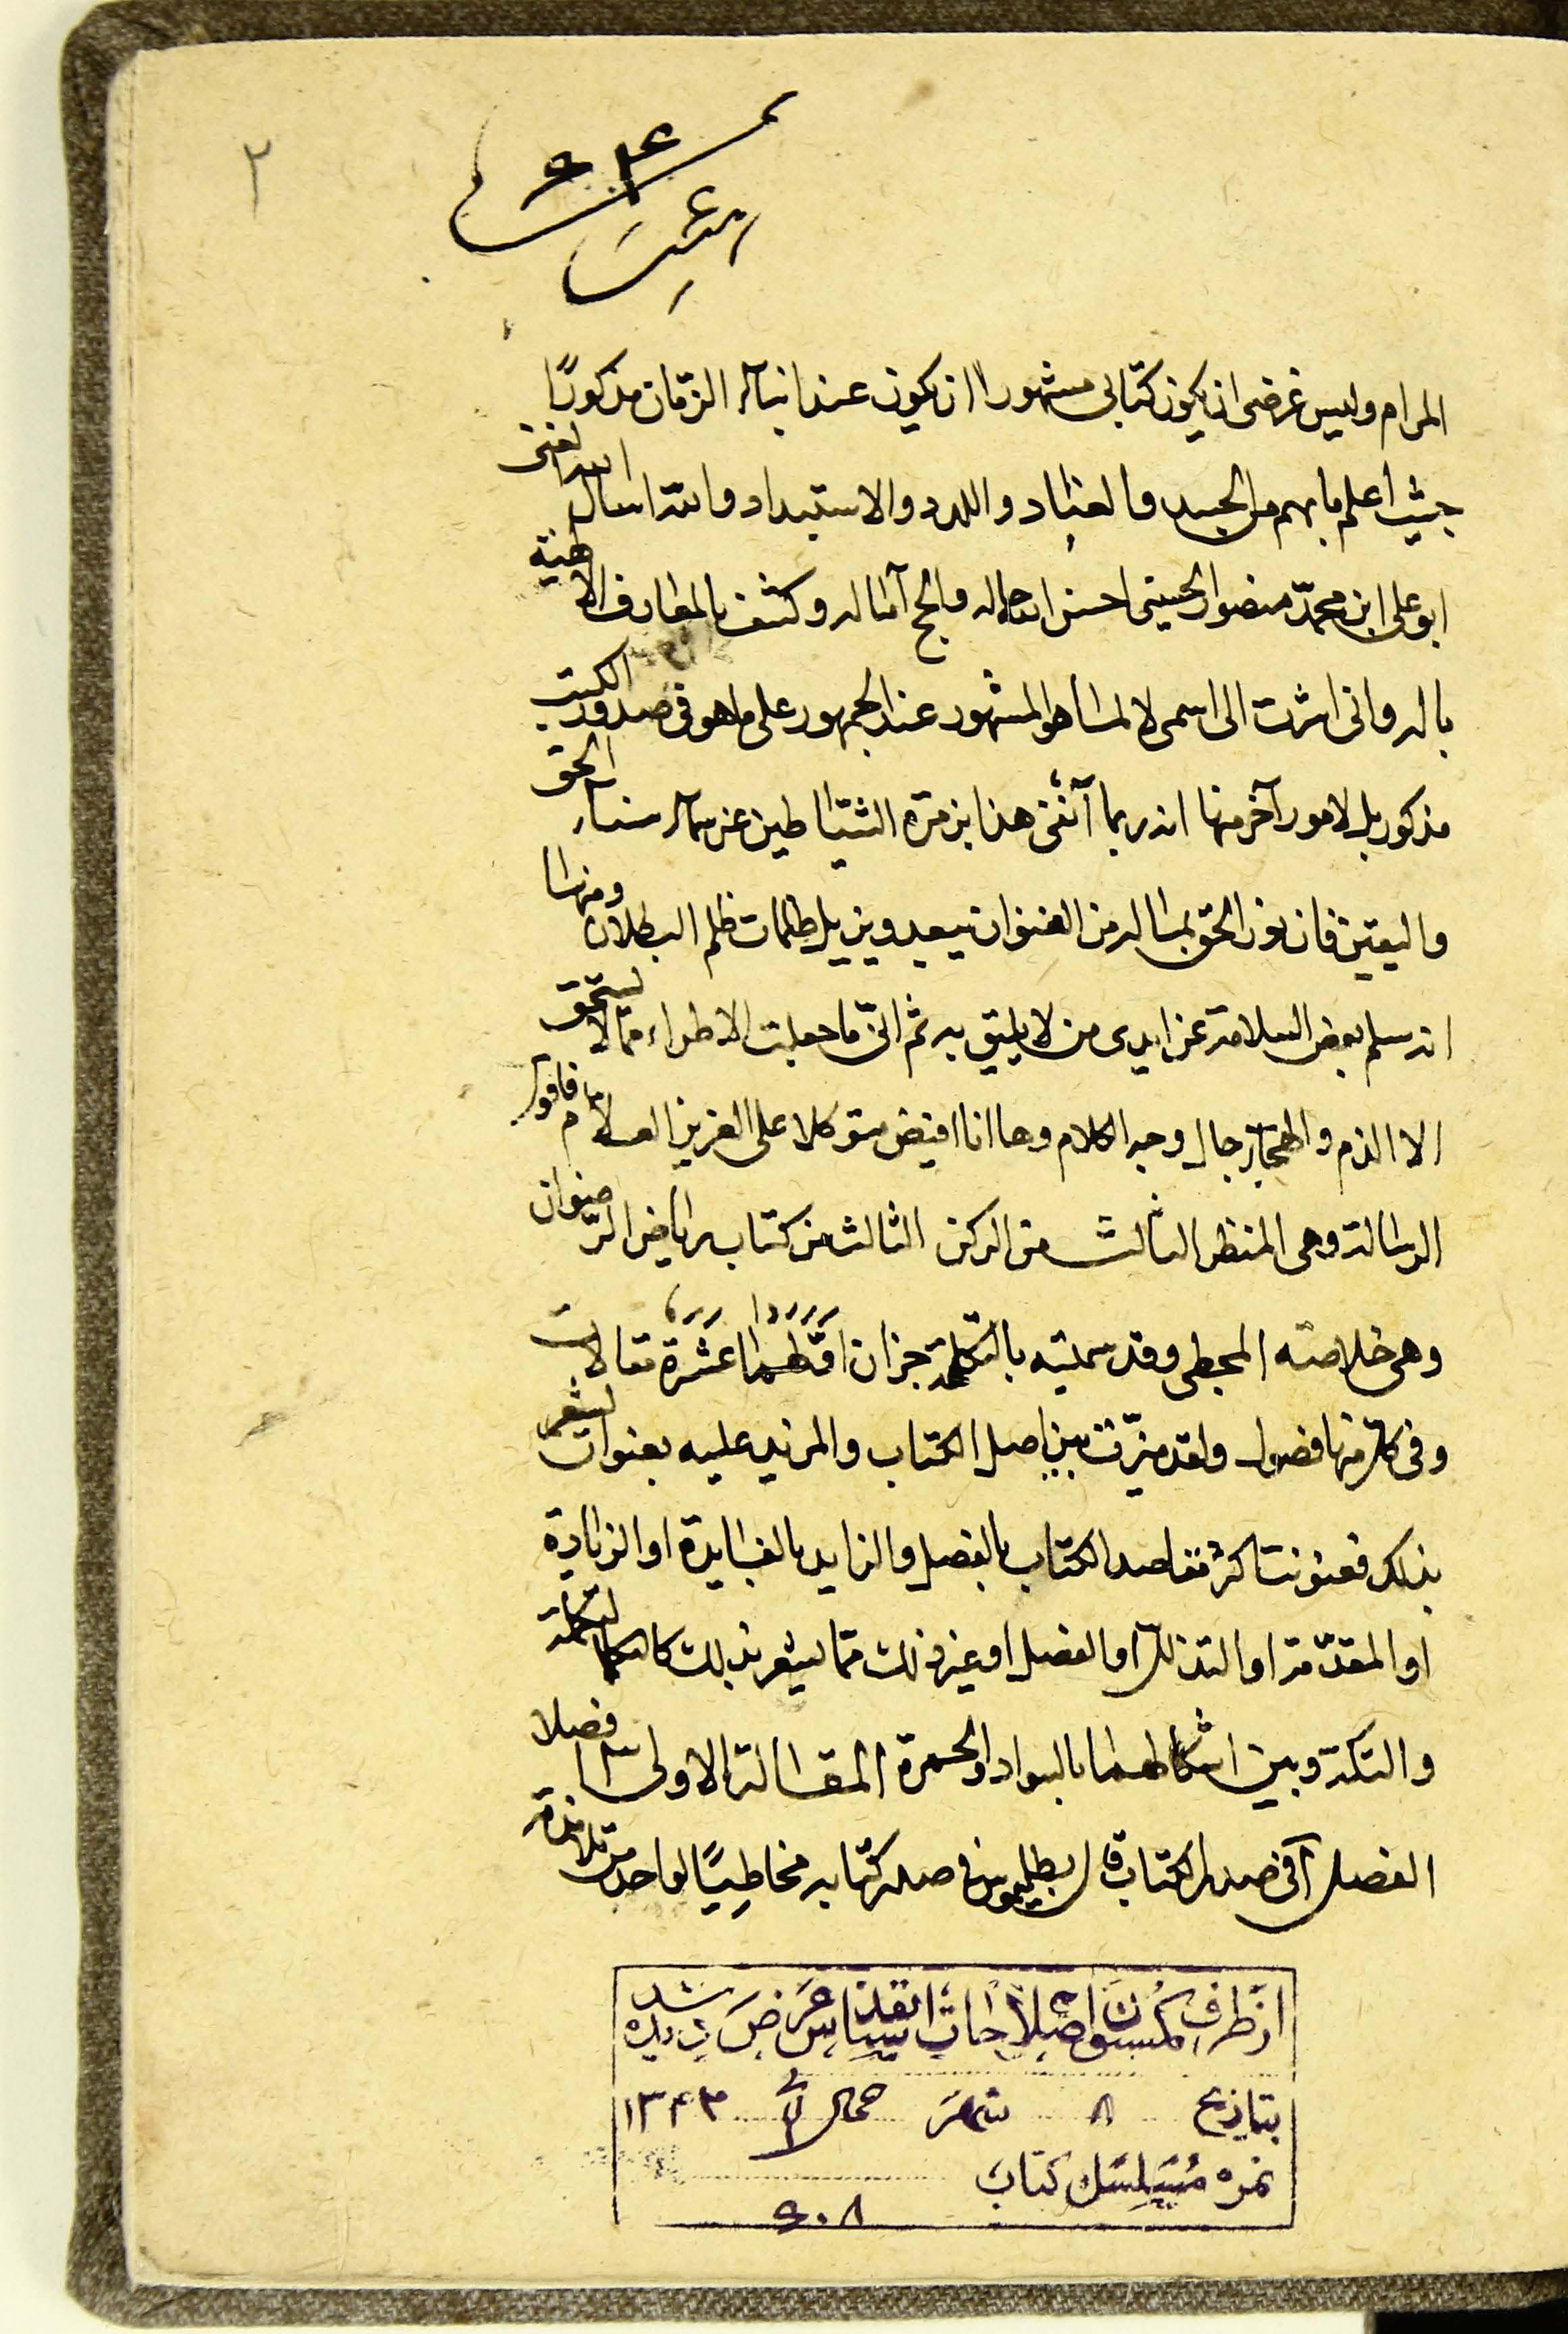 ٢
المرام وليس غرضى ان يكون كتابى مشهورا او ان يكون عند ابنآء الزمان مذكورًا
حيث اعلم ما بهم من الحسد والعناد واللدد والاستبداد وانه اسال العبد الغنى
ابو على ابن محمّد منصور الحسينى احسن الله حاله وانجح آماله وكشف بالمعارف الالهية
باله وانى اشرت الى اسمى لا لما هو المشهور عند الجمهور على ما هو فى صدور الكتب
مذكور بل لامور آخر منها انه ربما هذا بزمرة الشياطين عن سمآء سنآء الحق
واليقين فان نور الحق بماله من العنوان يبعد ويزيل ظلمات ظلم البطلان ومنها
انه سلم بعض السلامة عن ايدى من لا يليق به ثم انى ما جعلت الاطراء مما لا يستحق
الا الذم والهجآء جمال وجه الكلام وها انا افيض متوكلا على العزيز العلام فاقول
الرسالة وهى المنظر الثالث من الركن الثالث من كتاب رياض الرضوان
وهى خلاصته المجطى وقد سميته بالتكملة جزان اوّلهما عَشَرَة مقالات
وفى كل منها فصول ولقد ميزت بين اصل الكتاب والمزيد عليه بعنوان يشعر
بذلك فعنونت اكثر مقاصد الكتاب بالفصل والزايد بالفايدة او الزيادة
او المقدّمة او التذلل او الفصل او غير ذلك مما يشعر بذلك كالتكملة
والنكتة وبين اشكالهما بالسواد والحمرة المقالة الاولى فصلا
الفصل آ فى صدر الكتاب قال بطليموس فى صدر كتابه مخاطبًا لواحد من تلامذته
از طرف كمسيون اصلاحات انقذ اساس عرض ديده شد
بتاريخ ٨ شهر جمال ١٣٤٣
نمره مسلسل كتاب
٩٠٨